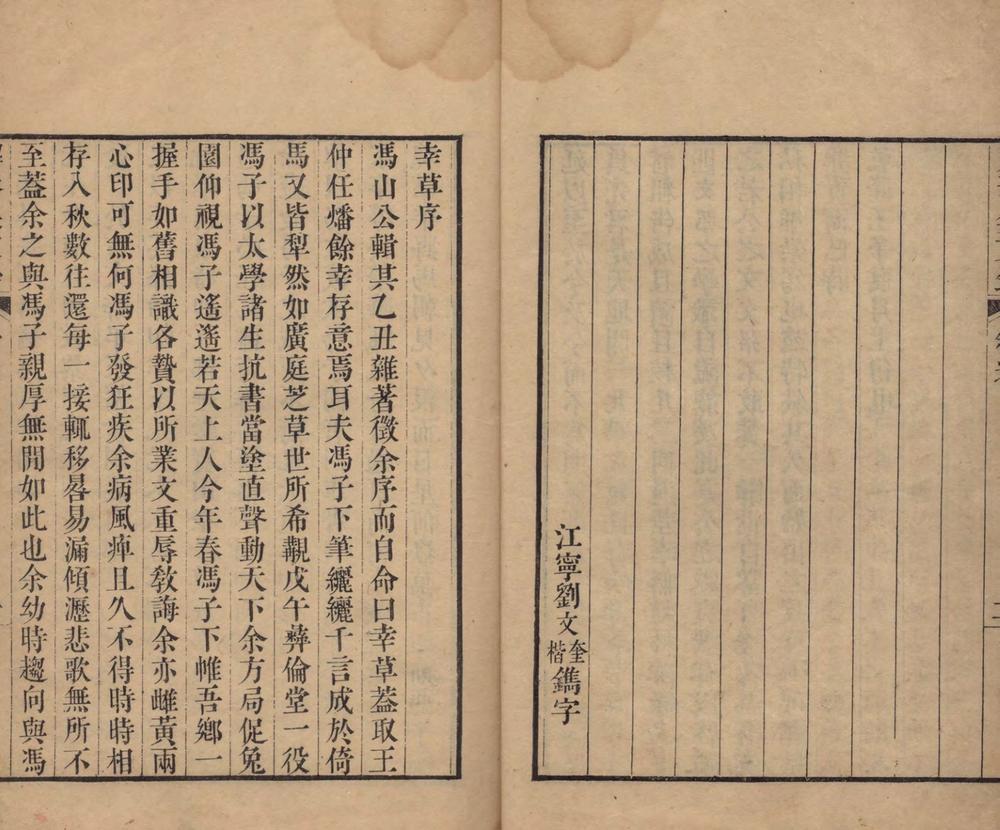 江寧劉文奎楷鐫字
幸草序
馮山公輯其乙丑雜著徵余序而自命曰幸草蓋取王
仲任燔餘幸存意焉耳夫馮子下筆纚纚千言成於倚
馬又皆犁然如廣庭芝草世所希覯戊午彝倫堂一役
馮子以太學諸生抗書當塗直聲動天下余方局促兔
園仰視馮子遙遙若天上人今年春馮子下帷吾鄉一
握手如舊相識各贄以所業文重辱敎誨余亦雌黃兩
心印可無何馮子發狂疾余病風痺且久不得時時相
存入秋數往還每一接輒移晷易漏傾瀝悲歌無所不
至蓋余之與馮子親厚無閒如此也余幼時趨向與馮